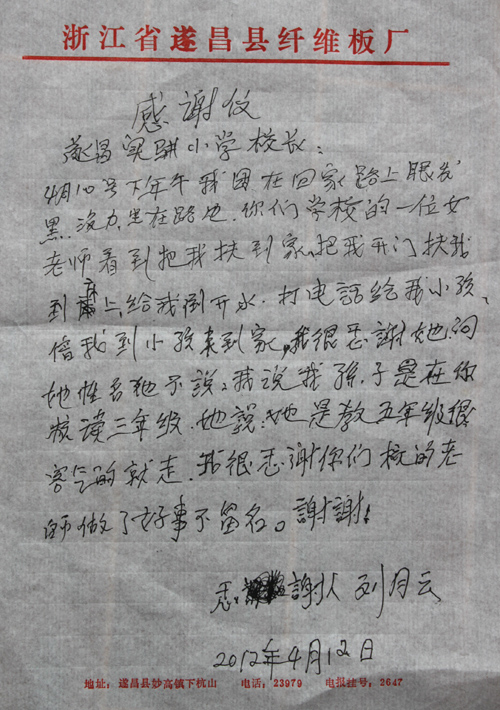 浙江省遂昌县纤维板厂
感谢仪
遂昌实驗小学校长：
4月10号下年午我因在回家路上眼发
黑，没力，坐在路也，你们学校的一位女
老师看到把我扶到家，把我开门扶我
到床上，给我倒开水，打电話给我小孩，
倍我到小孩来到家，我很感謝她，问
她性名她不说，我说我孫子是在你
校读三年级，她說：她是教五年级很
客气的就走，我很感謝你们校的老
师做了好事不留名。謝謝！
感謝人 刘月云
2012年4月12日
地址：遂昌县妙高镇下杭山 电话：23979 电报挂号：2647